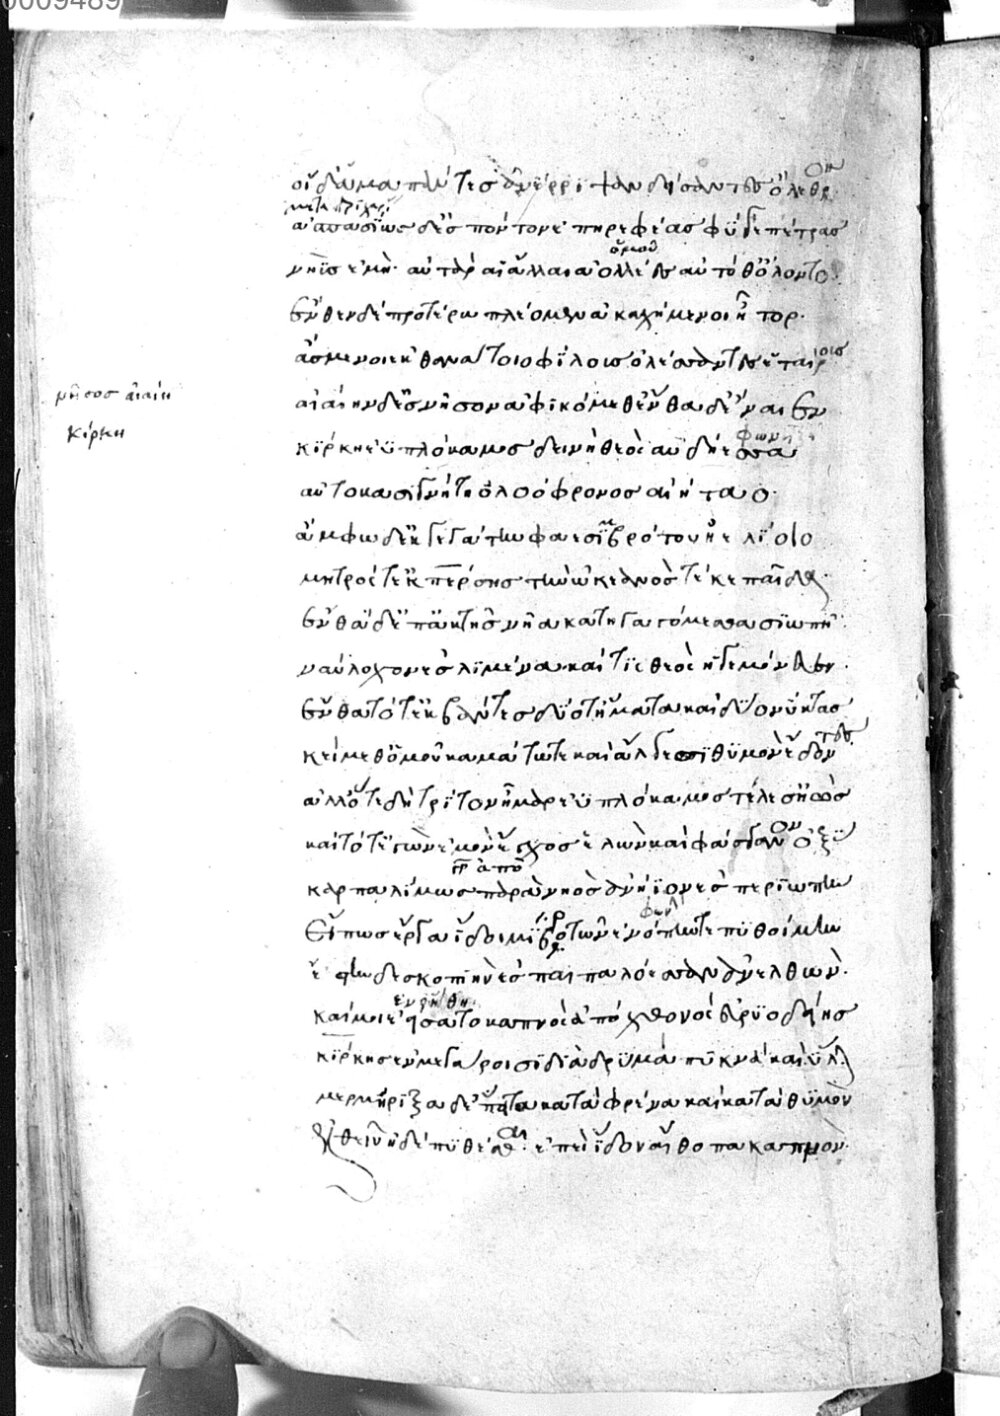 0009489
οἱ δ' ἅμα πάντες ἀνέρριψαν δείσαντες ὄλεθρον
μετὰ χαρᾶς
ἀσπασίως δ' ἐς πόντον ἐπηρεφέας φύγε πέτρας
ὁμοῦ
νηῦς ἐμή· αὐτὰρ αἱ ἄλλαι ἀολλέες αὐτόθ' ὄλοντο·
ἔνθεν δὲ προτέρω πλέομεν ἀκαχήμενοι ἦτορ·
ἄσμενοι ἐκ θανάτοιο φίλους ὀλέσαντες ἑταίρους
αἰαίην δ' ἐς νῆσον ἀφικόμεθ' ἔνθα δ' ἔναιεν
νῆσος αἰαίη
κίρκη
φωνη
κίρκη ἐϋπλόκαμος δεινὴ θεὸς αὐδήεσσα
αὐτοκασιγνήτη ὀλοόφρονος αἰήταο·
ἄμφω δ' ἐκγεγάτην φαεσιμβρότου ἠελίοιο
μητρός τ' ἐκ πέρσης τὴν ὠκεανὸς τέκε παῖδα·
ἔνθα δ' ἐπ' ἀκτῆς νηῒ κατηγαγόμεσθα σιωπῇ
ναύλοχον ἐς λιμένα καί τις θεὸς ἡγεμόνευεν·
ἔνθα τότ' ἐκβάντες δύο τ' ἤματα καὶ δύο νύκτας
κείμεθ' ὁμοῦ καμάτῳ τε καὶ ἄλγεσι θυμὸν ἔδοντες
ἀλλ' ὅτε δὴ τρίτον ἦμαρ ἐϋπλόκαμος τέλεσ' ἠώς
καὶ τότ' ἐγὼν ἐμὸν ἔγχος ἑλὼν καὶ φάσγανον ὀξὺ
ἀπὸ
καρπαλίμως παρὰ νηὸς ἀνήϊον ἐς περιωπήν
φωνήν
εἴ πως ἔργα ἴδοιμι βροτῶν ἐνοπήν τε πυθοίμην
ἔστην δὲ σκοπιὴν ἐς παιπαλόεσσαν ἀνελθών·
εὑρέθη
καί μοι ἐείσατο καπνὸς ἀπὸ χθονὸς εὐρυοδείης
κίρκης ἐν μεγάροισι διὰ δρυμὰ πυκνὰ καὶ ὕλην
μερμήριξα δ' ἔπειτα κατὰ φρένα καὶ κατὰ θυμὸν
ἐλθεῖν ἠδὲ πυθέσθαι· ἐπεὶ ἴδον αἴθοπα καπνόν·